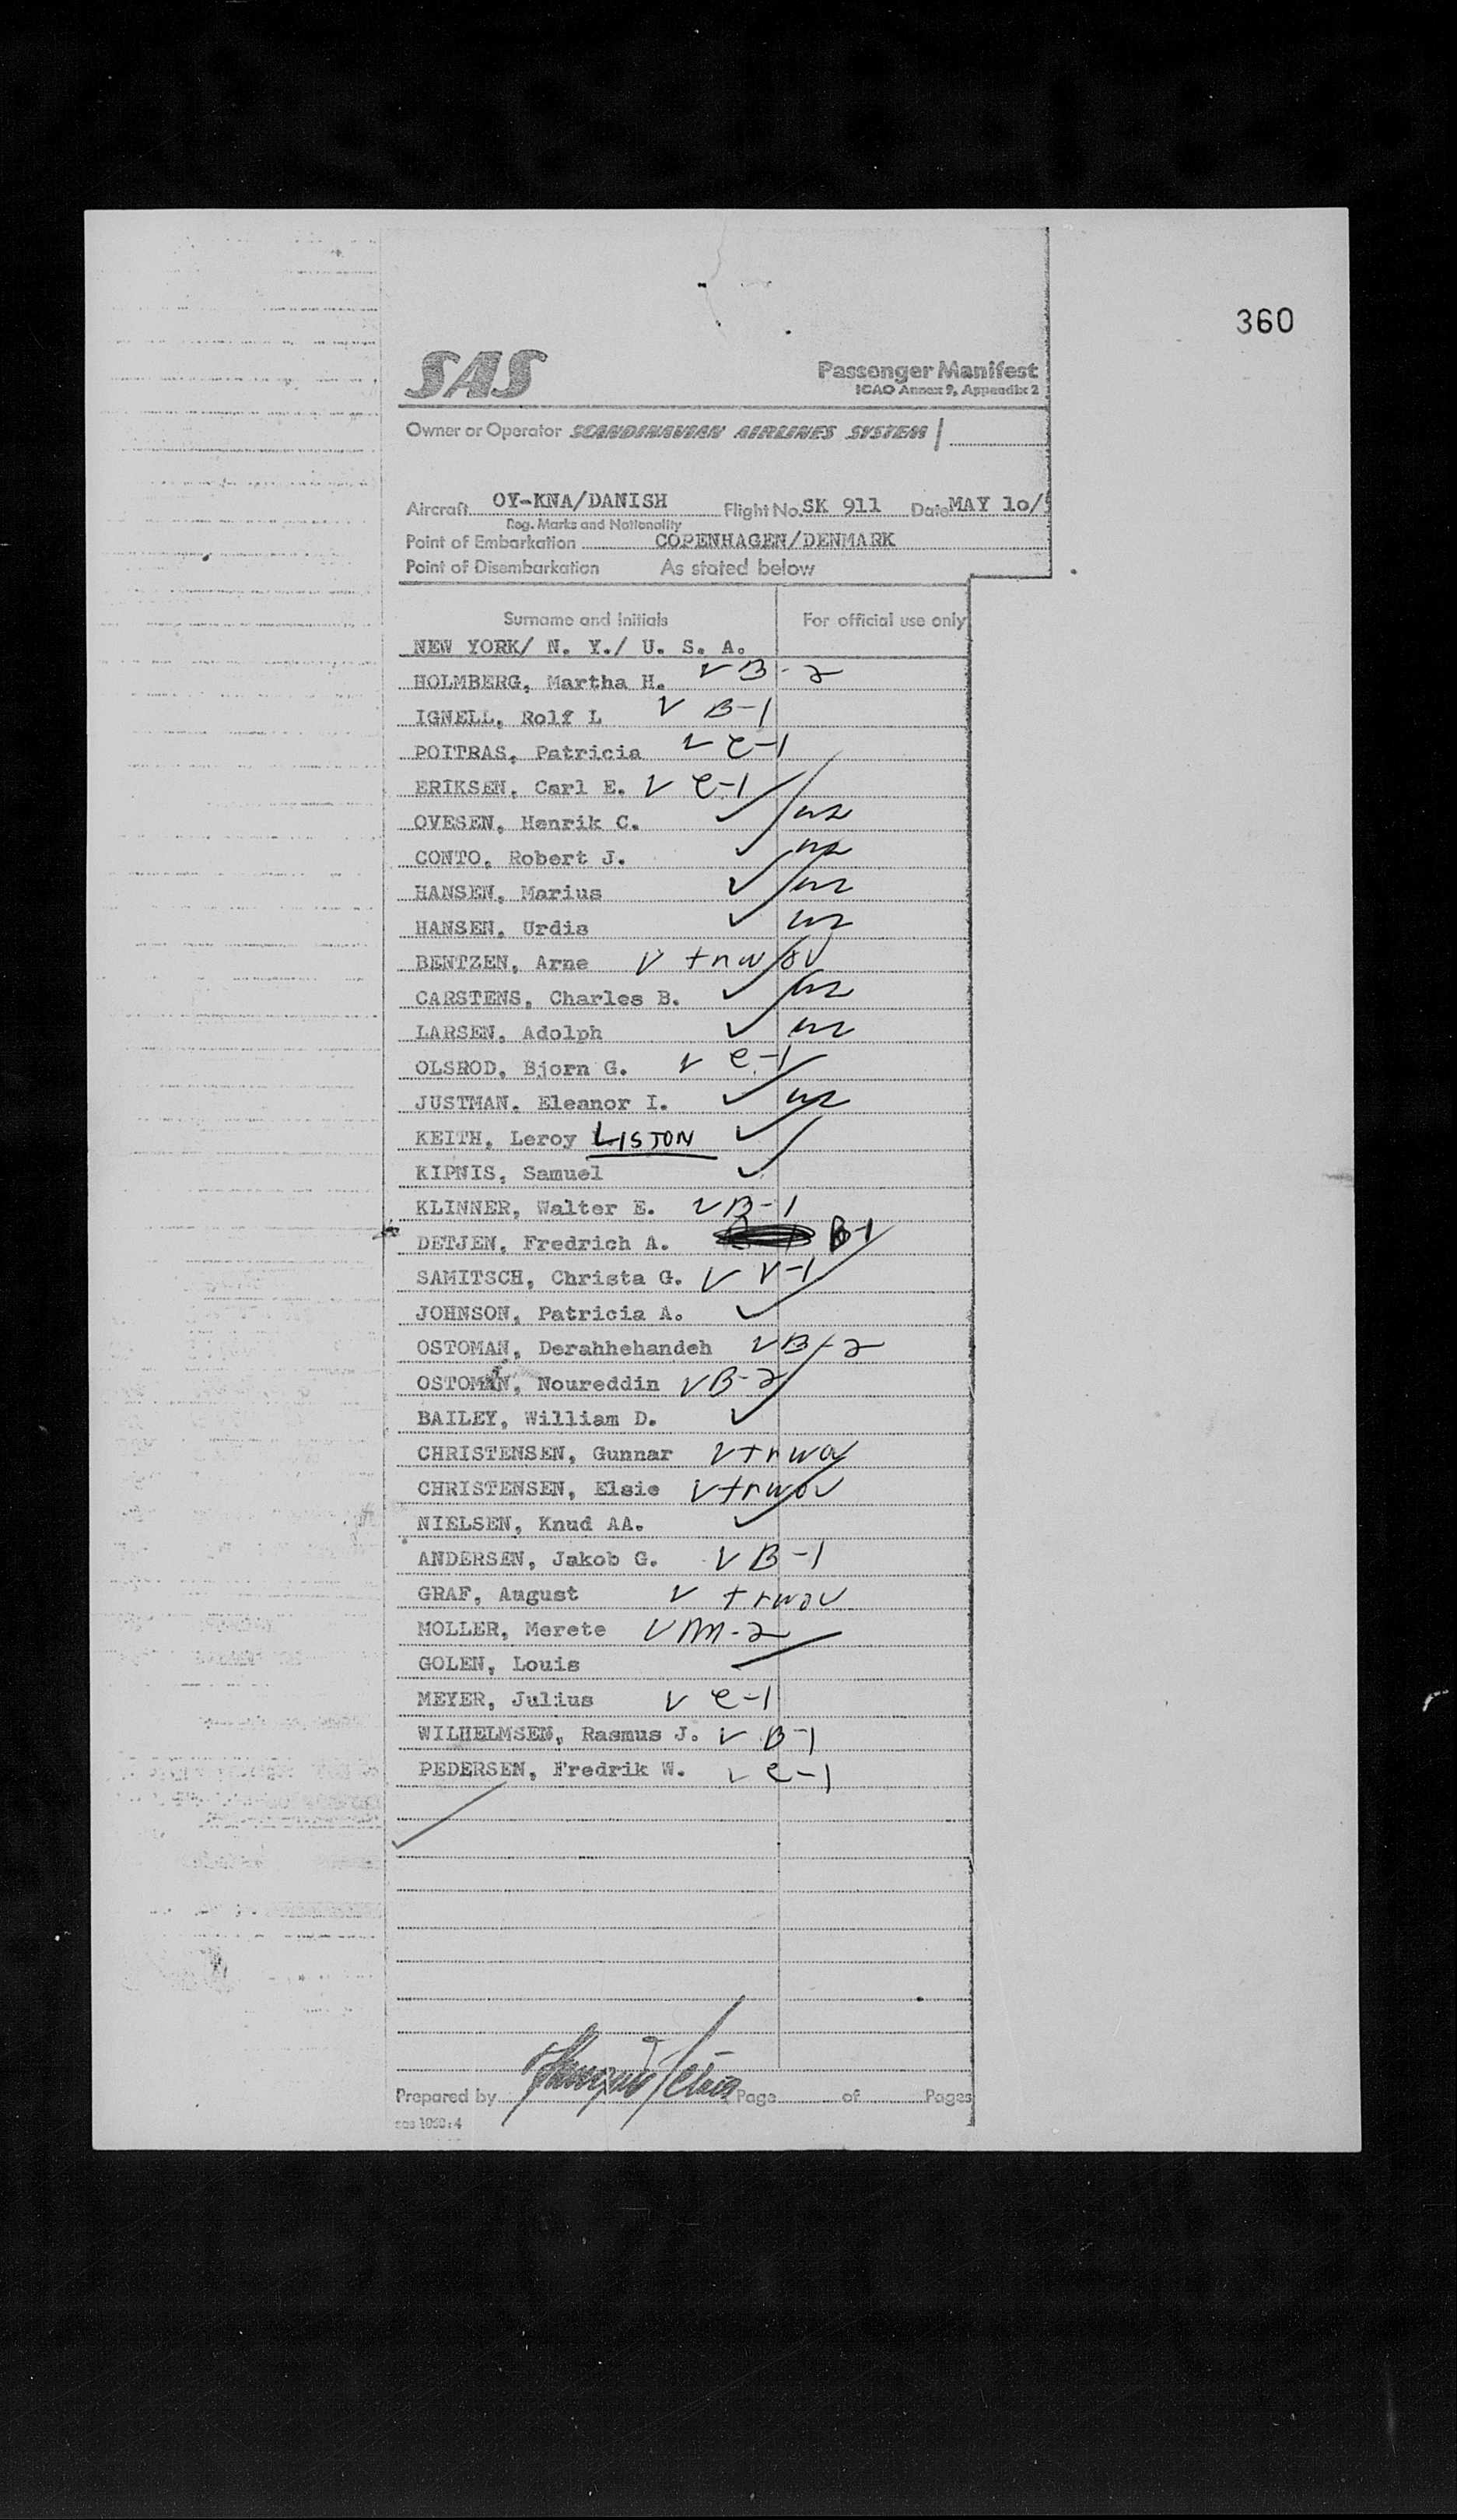 360
SAS
Passenger Manifest
ICAO Annex 9, Appendix 2
Owner or Operator SCANDINAVIAN AIRLINES SYSTEM
Aircraft OY-KNA/DANISH Flight No. SK 911 Date MAY 10/
Reg. Marks and Nationality
Point of Embarkation COPENHAGEN/DENMARK
Point of Disembarkation As stated below
Surname and Initials For official use only
NEW YORK/ N. Y./ U. S. A.
HOLMBERG, Martha H. ✓ B-2
IGNELL, Rolf L ✓ B-1
POITRAS, Patricia ✓ C-1
ERIKSEN, Carl E. ✓ C-1
OVESEN, Henrik C. ✓
CONTO, Robert J. ✓
HANSEN, Marius ✓
HANSEN, Urdis ✓
BENTZEN, Arne ✓ trwov
CARSTENS, Charles B. ✓
LARSEN, Adolph ✓
OLSROD, Bjorn G. ✓ C-1
JUSTMAN, Eleanor I. ✓
KEITH, Leroy LISTON ✓
KIPNIS, Samuel ✓
KLINNER, Walter E. ✓ B-1
DETJEN, Fredrich A. B-1
SAMITSCH, Christa G. ✓ V-1
JOHNSON, Patricia A. ✓
OSTOMAN, Derahhehandeh ✓ B-2
OSTOMAN, Noureddin ✓ B-2
BAILEY, William D. ✓
CHRISTENSEN, Gunnar ✓ trwov
CHRISTENSEN, Elsie ✓ trwov
NIELSEN, Knud AA. ✓
ANDERSEN, Jakob G. ✓ B-1
GRAF, August ✓ trwov
MOLLER, Merete ✓ M-2
GOLEN, Louis ✓
MEYER, Julius ✓ C-1
WILHELMSEN, Rasmus J. ✓ B-1
PEDERSEN, Fredrik W. ✓ C-1
Prepared by Page of Pages
sas 1060:4